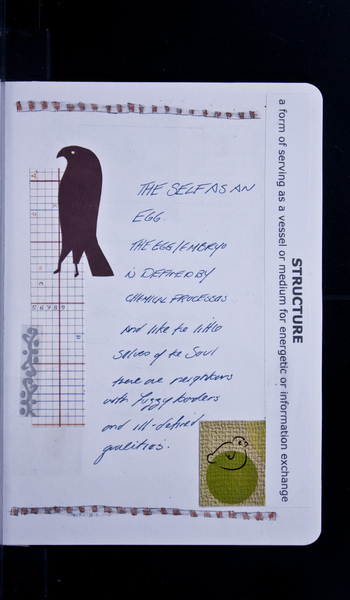 THE SELF AS AN
EGG.
THE EGG/EMBRYO
IS DEFINED BY
CHEMICAL PROCESSES
And like the little
Selves of the Soul
there are neighbors
with fuzzy borders
and ill-defined
qualities.
STRUCTURE
a form of serving as a vessel or medium for energetic or information exchange